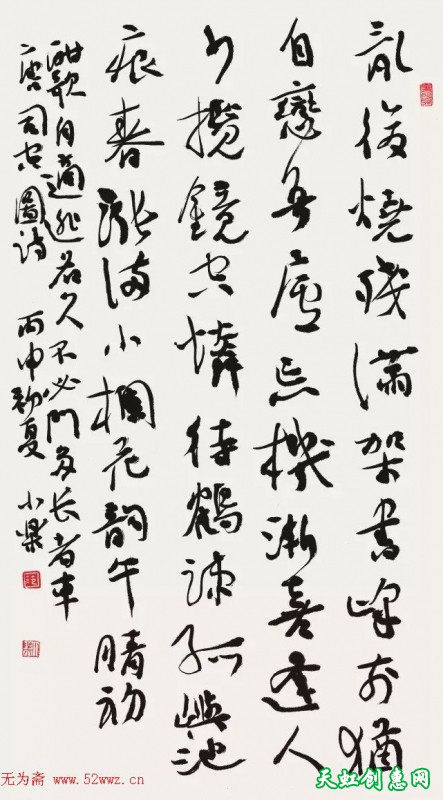 亂後燒殘滿架书峰前猶
自戀吾廬忘機漸喜逢人
少攬鏡空憐待鶴疎孤嶼池
痕春漲滿小欄花韻午晴初
酣歌自適逃名久不必門多长者車
唐司空圖詩 丙申初夏 小樂
无为斋 www.52wwz.cn
天虹创惠网